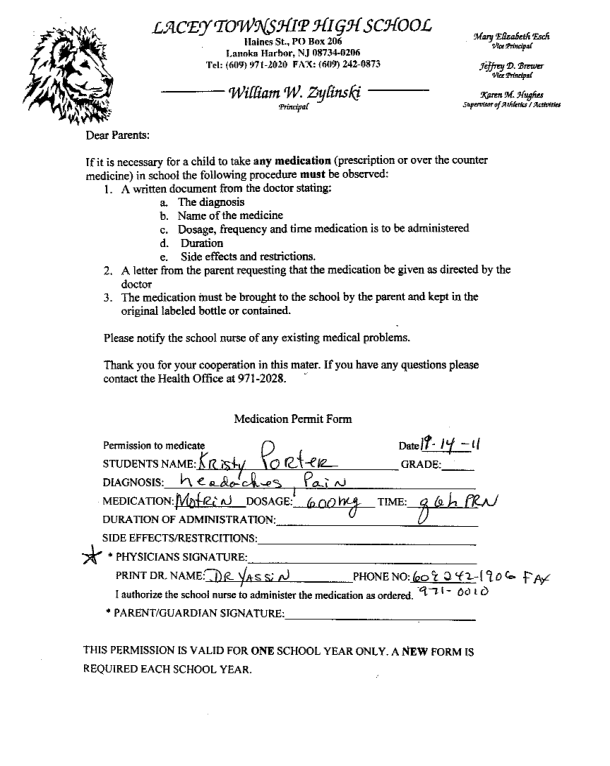 LACEY TOWNSHIP HIGH SCHOOL
Haines St., PO Box 206
Lanoka Harbor, NJ 08734-0206
Tel: (609) 971-2020 FAX: (609) 242-0873
William W. Zylinski
Principal
Mary Elizabeth Esch
Vice Principal
Jeffrey D. Brewer
Vice Principal
Karen M. Hughes
Supervisor of Athletics / Activities
Dear Parents:
If it is necessary for a child to take any medication (prescription or over the counter
medicine) in school the following procedure must be observed:
1. A written document from the doctor stating:
a. The diagnosis
b. Name of the medicine
c. Dosage, frequency and time medication is to be administered
d. Duration
e. Side effects and restrictions.
2. A letter from the parent requesting that the medication be given as directed by the
doctor
3. The medication must be brought to the school by the parent and kept in the
original labeled bottle or contained.
Please notify the school nurse of any existing medical problems.
Thank you for your cooperation in this mater. If you have any questions please
contact the Health Office at 971-2028.
Medication Permit Form
Permission to medicate Date -14-11
STUDENTS NAME: Kristy Porter GRADE:
DIAGNOSIS: headaches, Pain
MEDICATION: Motrin DOSAGE: 600mg TIME: q6h PRN
DURATION OF ADMINISTRATION:
SIDE EFFECTS/RESTRCITIONS:
* PHYSICIANS SIGNATURE:
PRINT DR. NAME: DR YASSIN PHONE NO: 609 242-1906 FAX
I authorize the school nurse to administer the medication as ordered. 971-0010
* PARENT/GUARDIAN SIGNATURE:
THIS PERMISSION IS VALID FOR ONE SCHOOL YEAR ONLY. A NEW FORM IS
REQUIRED EACH SCHOOL YEAR.